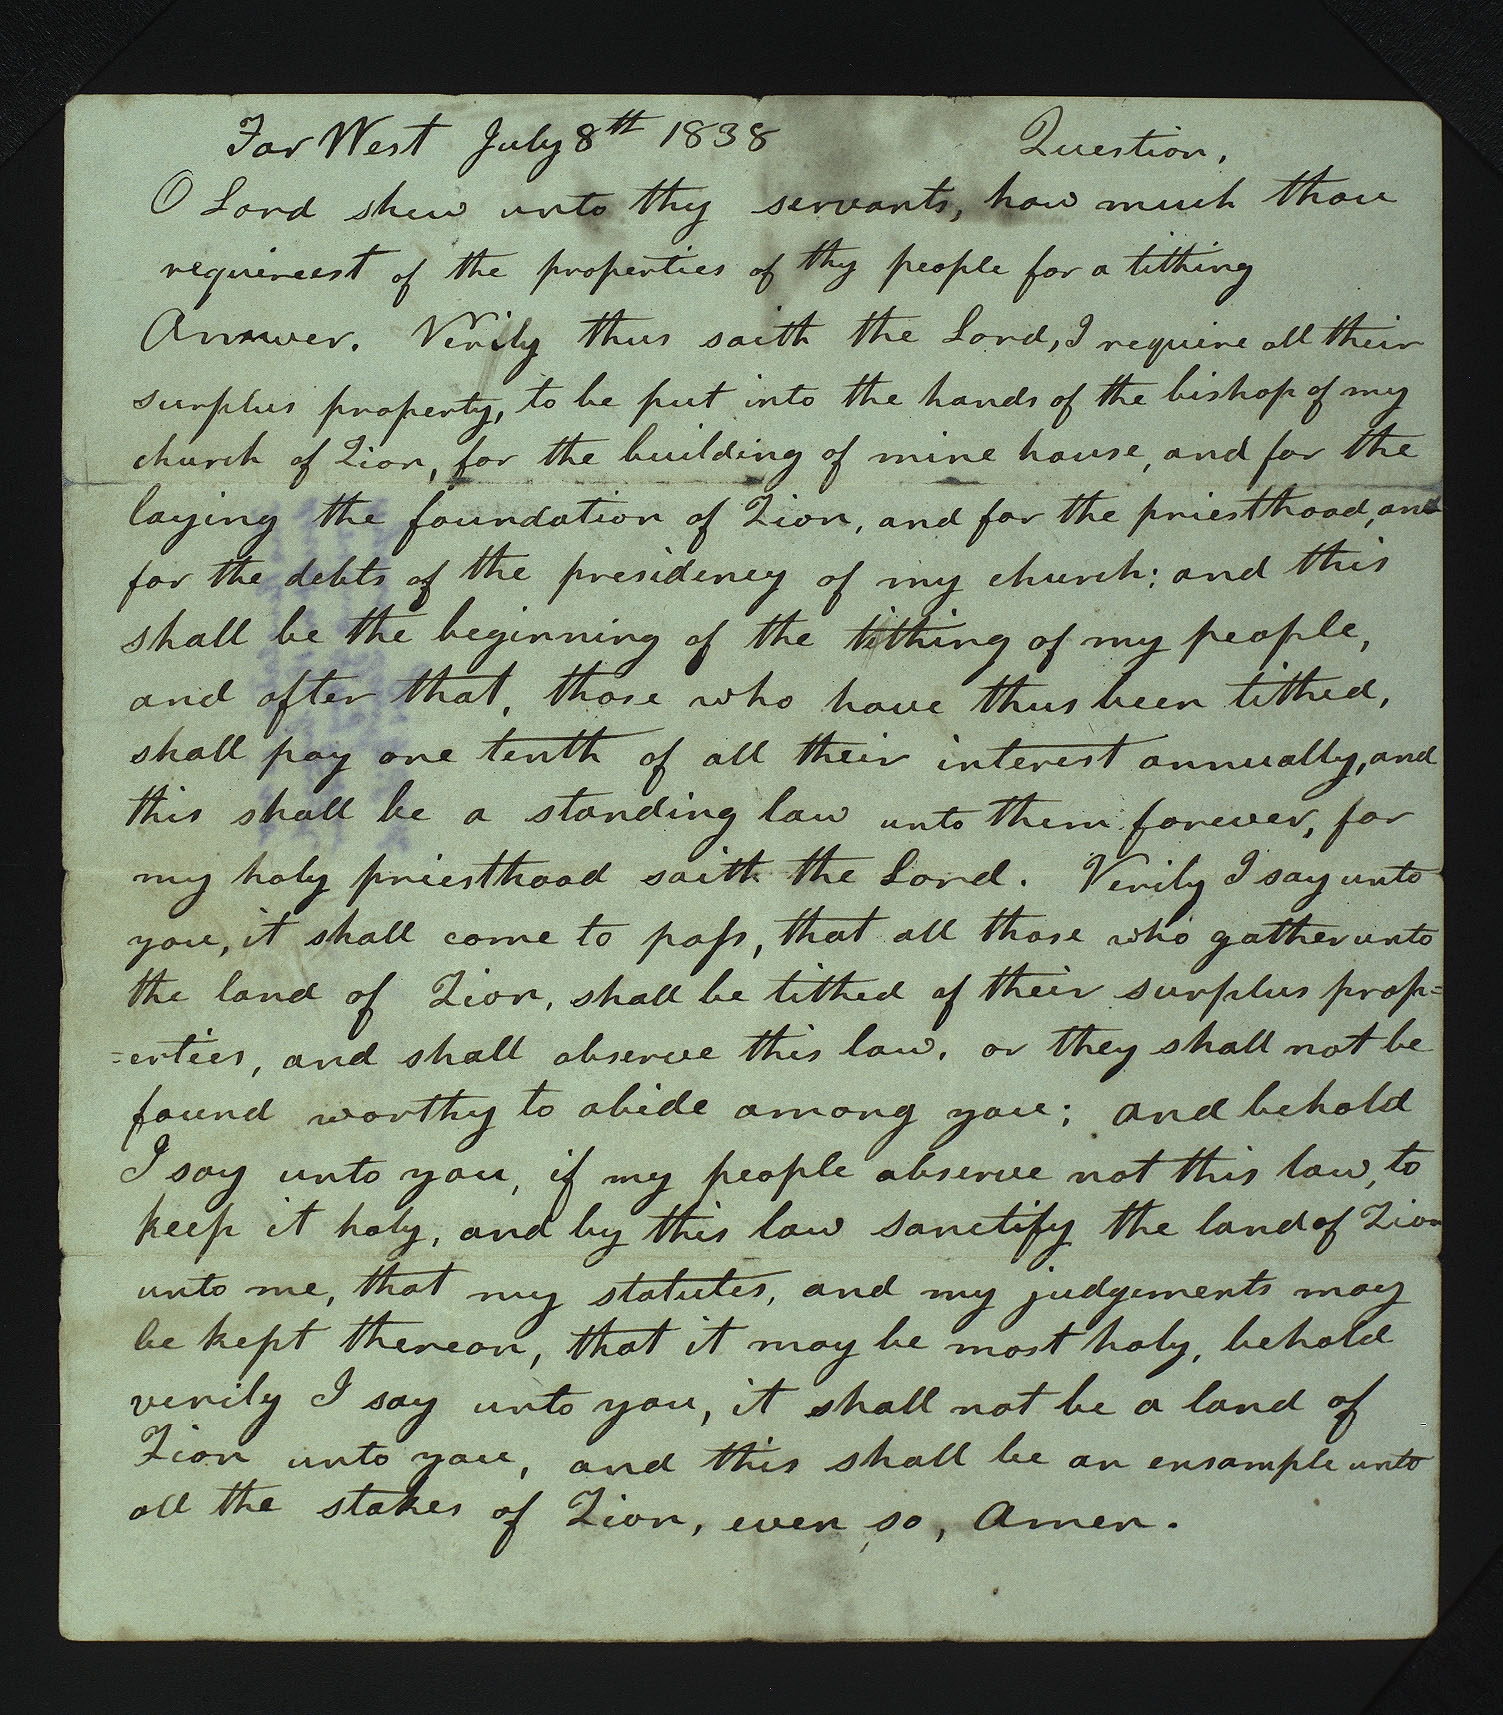 Far West July 8th 1838 Question,
O Lord shew unto thy servants, how much thou
requirest of the properties of thy people for a tithing
Answer. Verily thus saith the Lord, I require all their
surplus property, to be put into the hands of the bishop of my
church of Zion, for the building of mine house, and for the
laying the foundation of Zion, and for the priesthood, and
for the debts of the presidency of my church: and this
shall be the beginning of the tithing of my people,
and after that, those who have thus been tithed,
shall pay one tenth of all their interest annually, and
this shall be a standing law unto them forever, for
my holy priesthood saith the Lord. Verily I say unto
you, it shall come to pass, that all those who gather unto
the land of Zion, shall be tithed of their surplus prop=
=erties, and shall observe this law, or they shall not be
found worthy to abide among you; and behold
I say unto you, if my people observe not this law, to
keep it holy, and by this law sanctify the land of Zion
unto me, that my statutes, and my judgements may
be kept thereon, that it may be most holy, behold
verily I say unto you, it shall not be a land of
Zion unto you, and this shall be an ensample unto
all the stakes of Zion, even so, Amen.